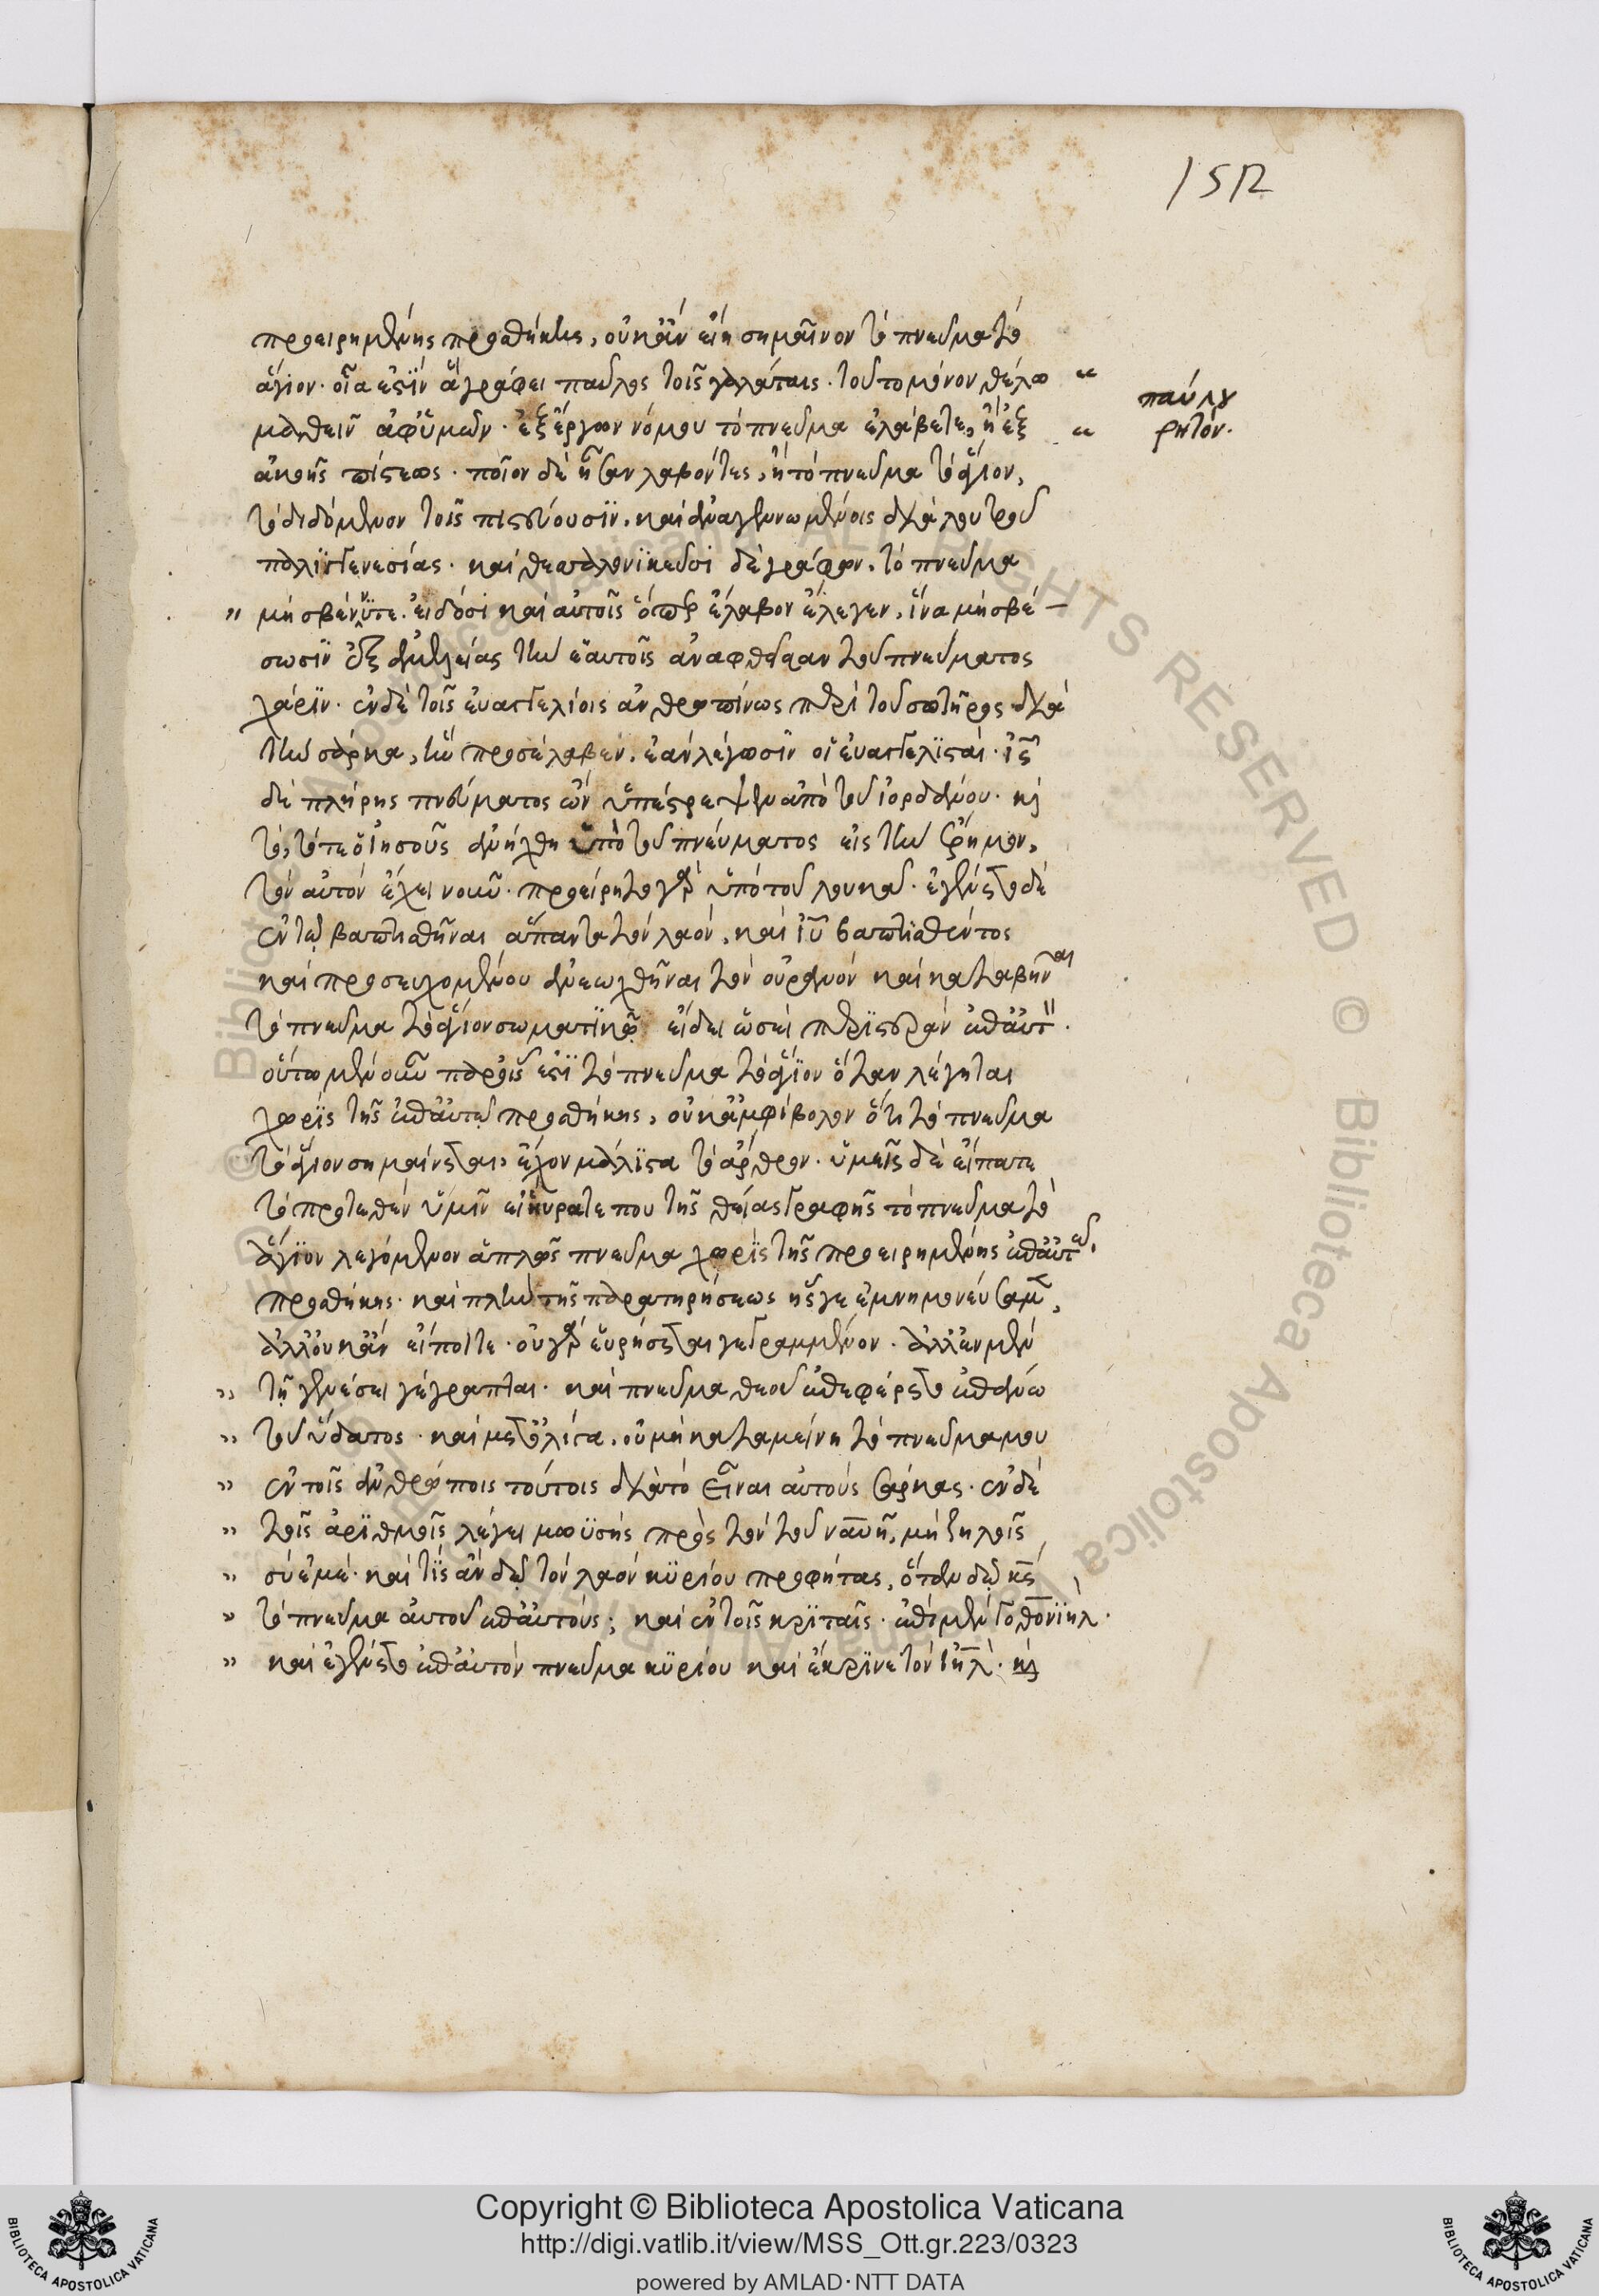 152
προειρημένης προσθήκης, οὐκἂν εἴη σημαῖνον τὸ πνεῦμα τὸ
ἅγιον. οἷα ἐστὶν ἃ γράφει παῦλος τοῖς γαλάταις. τοῦτο μόνον θέλω “
μαθεῖν ἀφ’ ὑμῶν. ἐξ ἔργων νόμου τὸ πνεῦμα ἐλάβετε, ἢ ἐξ “
παύλου
ῥητόν.
ἀκοῆς πίστεως. ποῖον δὲ ἦσαν λαβόντες, ἢ τὸ πνεῦμα τὸ ἅγιον,
τὸ διδόμενον τοῖς πιστεύουσιν. καὶ ἀναγεννωμένοις διὰ λουτροῦ
παλιγγενεσίας. καὶ θεσσαλονικεῦσι δὲ γράφων. τὸ πνεῦμα
" μὴ σβέννυτε. εἰδόσι καὶ αὐτοῖς ὅπερ ἔλαβον ἔλεγεν, ἵνα μὴ σβέ-
σωσιν ἐξ ἀμελείας τὴν ἑαυτοῖς ἀναφθεῖσαν τοῦ πνεύματος
χάριν. ἐν δὲ τοῖς εὐαγγελίοις ἀνθρωπίνως περὶ τοῦ σωτῆρος διὰ
τὴν σάρκα, ἣν προσέλαβεν. ἐὰν λέγωσιν οἱ εὐαγγελισταί. ις
δὲ πλήρης πνεύματος ὢν ὑπέστρεψεν ἀπὸ τοῦ ἰορδάνου. καὶ
τό, τότε ὁ ἰησοῦς ἀνήχθη ὑπὸ τοῦ πνεύματος εἰς τὴν ἔρημον,
τὸν αὐτὸν ἔχει νοῦν. προείρητο γὰρ ὑπὸ τοῦ λουκᾶ. ἐγένετο δὲ
ἐν τῷ βαπτισθῆναι ἅπαντα τὸν λαόν, καὶ ιυ βαπτισθέντος
καὶ προσευχομένου ἀνεωχθῆναι τὸν οὐρανὸν καὶ καταβῆναι
τὸ πνεῦμα τὸ ἅγιον σωματικῷ εἴδει ὡσεὶ περιστερὰν ἐπ’ αὐτ.
οὕτω μὲν οὖν παρ’ οἷς ἐστὶ τὸ πνεῦμα τὸ ἅγιον ὅταν λέγηται
χωρὶς τῆς ἐπ’ αὐτοῦ προσθήκης, οὐκ ἀμφίβολον ὅτι τὸ πνεῦμα
τὸ ἅγιον σημαίνεται, ἔχον μάλιστα τὸ ἄρθρον. ὑμεῖς δὲ εἴπατε
τὸ προτεθὲν ὑμῖν εἰ ηὕρατε που τῆς θείας γραφῆς τὸ πνεῦμα τὸ
ἅγιον λεγόμενον ἁπλῶς πνεῦμα χωρὶς τῆς προειρημένης ἐπ’ αὐτοῦ.
προσθήκης. καὶ πλὴν τῆς παρατηρήσεως ἧς γε ἐμνημονεύσαμ,
ἀλλ’ οὐκ ἂν εἴποιτε. οὐ γὰρ εὑρήσεται γεγραμμένον. ἀλλ’ ἐν μὲν
" τῇ γενέσει γέγραπται. καὶ πνεῦμα θεοῦ ἐπεφέρετο ἐπάνω
" τοῦ ὕδατος. καὶ μετ’ ὀλίγα. οὐ μὴ καταμείνῃ τὸ πνεῦμα μου
" ἐν τοῖς ἀνθρώποις τούτοις διὰ τὸ εἶναι αὐτοὺς σάρκας. ἐν δὲ
" τοῖς ἀριθμοῖς λέγει μωϋσῆς πρὸς τὸν τοῦ ναυῆ, μὴ ζηλοῖς
" σὺ ἐμέ. καὶ τίς ἂν δῷ τὸν λαὸν κυρίου προφήτας, ὅταν δῷ κς
" τὸ πνεῦμα αὐτοῦ ἐπ’ αὐτούς; καὶ ἐν τοῖς κριταῖς. ἐπὶ μὲν γοθονιηλ.
" καὶ ἐγένετο ἐπ’ αὐτὸν πνεῦμα κυρίου καὶ ἔκρινε τὸν ιηλ. καὶ
© Biblioteca Apostolica Vaticana ALL RIGHTS RESERVED © Biblioteca Apostolica Vaticana ALL RIGHTS RESERVED
Copyright © Biblioteca Apostolica Vaticana
http://digi.vatlib.it/view/MSS_Ott.gr.223/0323
powered by AMLAD·NTT DATA
BIBLIOTECA APOSTOLICA VATICANA
BIBLIOTECA APOSTOLICA VATICANA